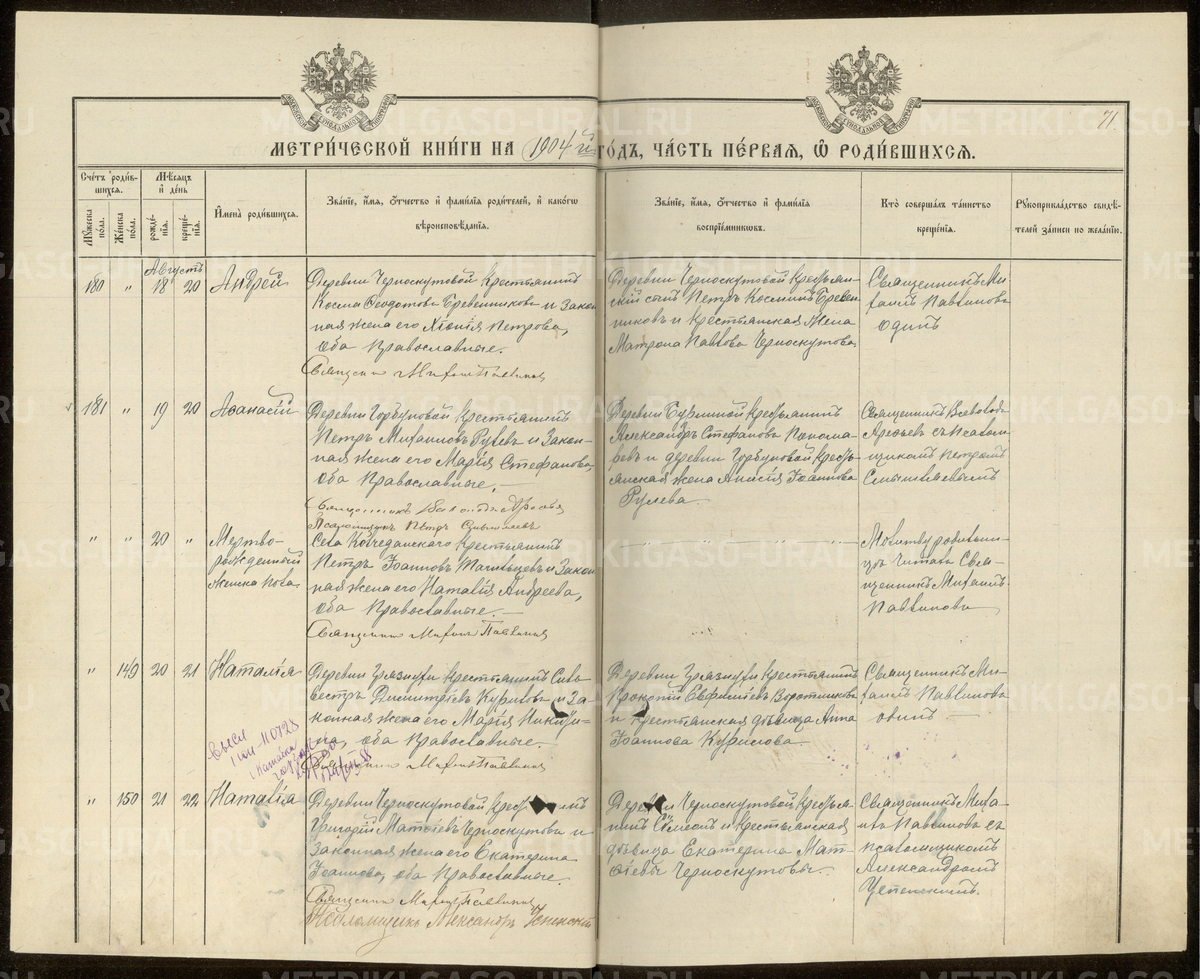 71.
МЕТРИ́ЧЕСКОЙ КНИ́ГИ НА 1904й ГО́ДЪ, ЧА́СТЬ ПЕ́РВАЯ, Ѡ РОДИ́ВШИХСЯ.
Сче́тъ роди́вшихся.
Му́жеска по́ла.
Же́нска по́ла.
Мѣ́сяцъ и́ де́нь
рожде́нія.
креще́нія.
И́мена̀ роди́вшихся.
Зва́ніе, и́мя, ѻ́тчество и́ фами́лія роди́телей, и́ како́гѡ вѣроисповѣ́данія.
Зва́ніе, и́мя, ѻ́тчество и́ фами́лія воспріе́мникѡвъ.
Кто̀ соверша́лъ та́инство креще́нія.
Рꙋкоприкла́дство свидѣ́телей за́писи по жела́нію.
Августъ
180 " 18 20 Андрей
Деревни Черноскутовой Крестьянинъ
Косма Ѳеодотовъ Бревенниковъ и Закон
ная жена его Хіонія Петрова,
оба Православные.
Священникъ Михаилъ Павлиновъ
Деревни Черноскутовой Крестьян-
скій сынъ Петръ Косминъ Бревен
никовъ и Крестьянская Жена
Матрона Павлова Черноскутова
Священникъ Ми
хаилъ Павлиновъ
одинъ
181 " 19 20 Аѳанасій
Деревни Горбуновой Крестьянинъ
Петръ Михаиловъ Рулевъ и Закон-
ная жена его Марія Стефанова,
оба Православные.
Священникъ Всеволодъ
Псаломщикъ Петръ
Деревни Бурниной Крестьянинъ
Александръ Стефановъ Понома-
ревъ и деревни Горбуновой Кресть-
янская жена Анисія Іоаннова
Рулева.
Священникъ Всеволодъ
съ Псалом
щикомъ Петромъ
" " 20 " Мертво-
рожденный
Женска пола
Села Колчеданскаго Крестьянинъ
Петръ Іоанновъ и Закон
ная жена его Наталія Андреева,
оба Православные.
Священникъ Михаилъ Павлиновъ
Молитву родильни-
цѣ читалъ Свя-
щенникъ Михаилъ
Павлиновъ
" 149 20 21 Наталія
Деревни Грязнухи Крестьянинъ Силь
вестръ Димитріевъ Куриловъ и За-
конная жена его Марія Никити-
на, оба Православные.
Священникъ Михаилъ Павлиновъ
Деревни Грязнухи Крестьянинъ
Прокопій Евфиміевъ Воротниковъ
и Крестьянская дѣвица Анна
Іоаннова Курилова.
Священникъ Ми-
хаилъ Павлиновъ
одинъ
" 150 21 22 Наталія
Деревни Черноскутовой Крестьянинъ
Григорій Матѳіевъ Черноскутовъ и
Законная жена его Екатерина
Іоаннова, оба Православные.
Священникъ Михаилъ Павлиновъ
Псаломщикъ Александръ Успенскій
Деревни Черноскутовой Крестья-
нинъ Сѷмеонъ и Крестьянская
дѣвица Екатерина Мат-
ѳіевы Черноскутовы.
Священникъ Миха-
илъ Павлиновъ съ
псаломщикомъ
Александромъ
Успенскимъ.
METRIKI.GASO-URAL.RU